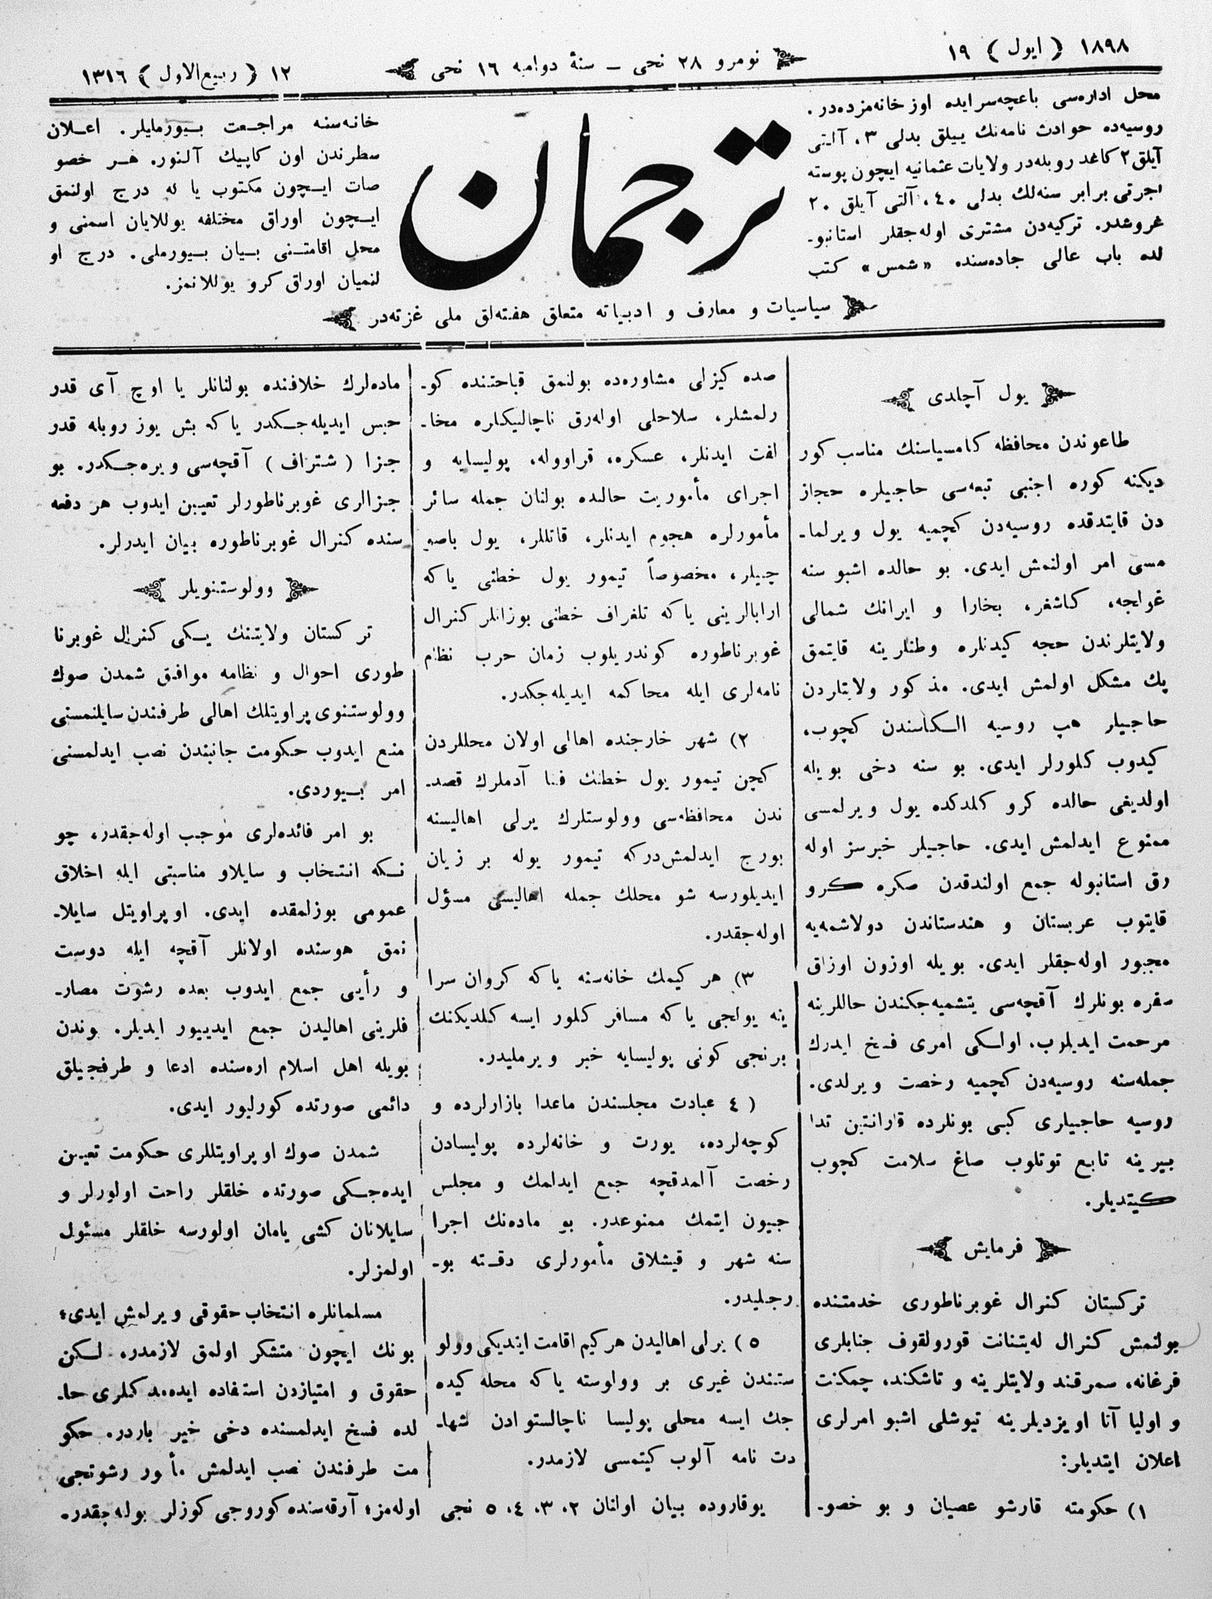 ١٨٩٨ ( ايول ) ١٩
نومرو ٢٨ نجی – سنهٔ دواميه ١٦ نجی
١٢ ( ربيع الاول ) ١٣١٦
محل اداره‌سی باغچه‌سرایده اوز خانه‌مزده‌در.
روسیه‌ده حوادث نامه‌نك ییلق بدلی ٣، آلتی
آیلق ٢ کاغد روبله‌در ولایات عثمانیه ایچون پوسته
اجرتی برابر سنه‌لك بدلی ٤٠، آلتی آیلق ٢٠
غروشدر. ترکیه‌دن مشتری اوله‌جقلر استانبو-
لده باب عالی جاده‌سنده «شمس» کتب
ترجمان
خانه‌سنه مراجعت بیورمایلر. اعلان
سطرندن اون کاپیك آلنور. هر خصو
صات ایچون مکتوب یا له درج اولنمق
ایچون اوراق مختلفه یوللایان اسمنی و
محل اقامتنی بیان بیورملی. درج او
لنمیان اوراق کرو یوللانمز.
سیاسیات و معارف و ادبیاته متعلق هفته‌لق ملی غزته‌در
یول آچلدی
طاعوندن محافظه کامسیاسنك مناسب کور
دیکنه کوره اجنبی تبعه‌سی حاجیلره حجاز
دن قایتدقده روسیه‌دن کچمیه یول ویرلما-
مسی امر اولنمش ایدی. بو حالده اشبو سنه
غولجه، کاشغر، بخارا و ایرانك شمالی
ولایتلرندن حجه کیدنلره وطنلرینه قایتمق
پك مشکل اولمش ایدی. مذکور ولایتلردن
حاجیلر هپ روسیه الکاسندن کچوب،
کیدوب کلورلر ایدی. بو سنه دخی بویله
اولدیغی حالده کرو کلدکده یول ویرلمسی
ممنوع ایدلمش ایدی. حاجیلر خبرسز اوله
رق استانبوله جمع اولندقدن صکره کرو
قایتوب عربستان و هندستاندن دولاشمه‌یه
مجبور اوله‌جقلر ایدی. بویله اوزون اوزاق
سفره بونلرك آقچه‌سی یتشمیه‌جکندن حاللرینه
مرحمت ایدیلوب، اولکی امری فسخ ایدرك
جمله‌سنه روسیه‌دن کچمیه رخصت ویرلدی.
روسیه حاجیلری کبی بونلرده قارانتین تدا
بیرینه تابع توتلوب صاغ سلامت کچوب
کیتدیلر.
فرمایش
ترکستان کنرال غوبرناطوری خدمتنده
بولنمش کنرال له‌یتنانت قورولقوف جنابلری
فرغانه، سمرقند ولایتلرینه و تاشکند، چمکنت
و اولیا آتا اویزدیلرینه تیوشلی اشبو امرلری
اعلان ایتدیلر:
١) حکومته قارشو عصیان و بو خصو-
صده کیزلی مشاوره‌ده بولنمق قباحتنده کو-
رلمشلر، سلاحلی اوله‌رق ناچالیکلره مخا-
لفت ایدنلر، عسکره، قراووله، پولیسایه و
اجرای مأموریت حالده بولنان جمله سائر
مأمورلره هجوم ایدنلر، قاتللر، یول باصو
چیلر، مخصوصاً تیمور یول خطنی یاکه
ارابالرینی یاکه تلغراف خطنی بوزانلر کنرال
غوبرناطوره کوندریلوب زمان حرب نظام
نامه‌لری ایله محاکمه ایدیله‌جکدر.
٢) شهر خارجنده اهالی اولان محللردن
کچن تیمور یول خطنك فنا آدملرك قصد-
ندن محافظه‌سی وولوستلرك یرلی اهالیسنه
بورج ایدلمش‌درکه تیمور یوله بر زیان
ایدیلورسه شو محلك جمله اهالیسی مسؤل
اوله‌جقدر.
٣) هر کیمك خانه‌سنه یاکه کروان سرا
ینه یولجی یاکه مسافر کلور ایسه کلدیکنك
برنجی کونی پولیسایه خبر ویرملیدر.
٤ ) عبادت مجلسندن ماعدا بازارلرده و
کوچه‌لرده، یورت و خانه‌لرده پولیسادن
رخصت آلمدقچه جمع ایدلمك و مجلس
جیون ایتمك ممنوعدر. بو ماده‌نك اجرا
سنه شهر و قیشلاق مأمورلری دقته بو-
رجلیدر.
٥ ) یرلی اهالیدن هرکیم اقامت ایتدیکی وولو
ستندن غیری بر وولوسته یاکه محله کیده
جك ایسه محلی پولیسا ناچالستوادن شها-
دت نامه آلوب کیتمسی لازمدر.
یوقاروده بیان اولنان ٢، ٣، ٤، ٥ نجی
ماده‌لرك خلافنده بولنانلر یا اوچ آی قدر
حبس ایدیله‌جکدر یاکه بش یوز روبله قدر
جزا ( شتراف ) آقچه‌سی ویره‌جکدر. بو
جزالری غوبرناطورلر تعیین ایدوب هر دفعه
سنده کنرال غوبرناطوره بیان ایدرلر.
وولوستنویلر
ترکستان ولایتنك یکی کنرال غوبرنا
طوری احوال و نظامه موافق شمدن صوك
وولوستنوی پراویتلك اهالی طرفندن سایلنمسنی
منع ایدوب حکومت جانبندن نصب ایدلمسنی
امر بیوردی.
بو امر فائده‌لری موجب اوله‌جقدر، چو
نکه انتخاب و سایلاو مناسبتی ایله اخلاق
عمومی بوزلمقده ایدی. اوپراویتل سایلا-
نمق هوسنده اولانلر آقچه ایله دوست
و رأیی جمع ایدوب بعده رشوت مصار-
فلرینی اهالیدن جمع ایدییور ایدیلر. بوندن
بویله اهل اسلام اره‌سنده ادعا و طرفجیلق
دائمی صورتده کورلیور ایدی.
شمدن صوك اوپراویتللری حکومت تعیین
ایده‌جکی صورتده خلقلر راحت اولورلر و
سایلانان کشی یامان اولورسه خلقلر مسئول
اولمزلر.
مسلمانلره انتخاب حقوقی ویرلمش ایدی؛
بونك ایچون متشکر اولمق لازمدر، لکن
حقوق و امتیازدن استفاده ایده‌مدکلری حا-
لده فسخ ایدلمسنده دخی خیر باردر. حکو
مت طرفندن نصب ایدلمش مأمور رشوتجی
اوله‌مز؛ آرقه‌سنده کوروجی کوزلر بوله‌جقدر.